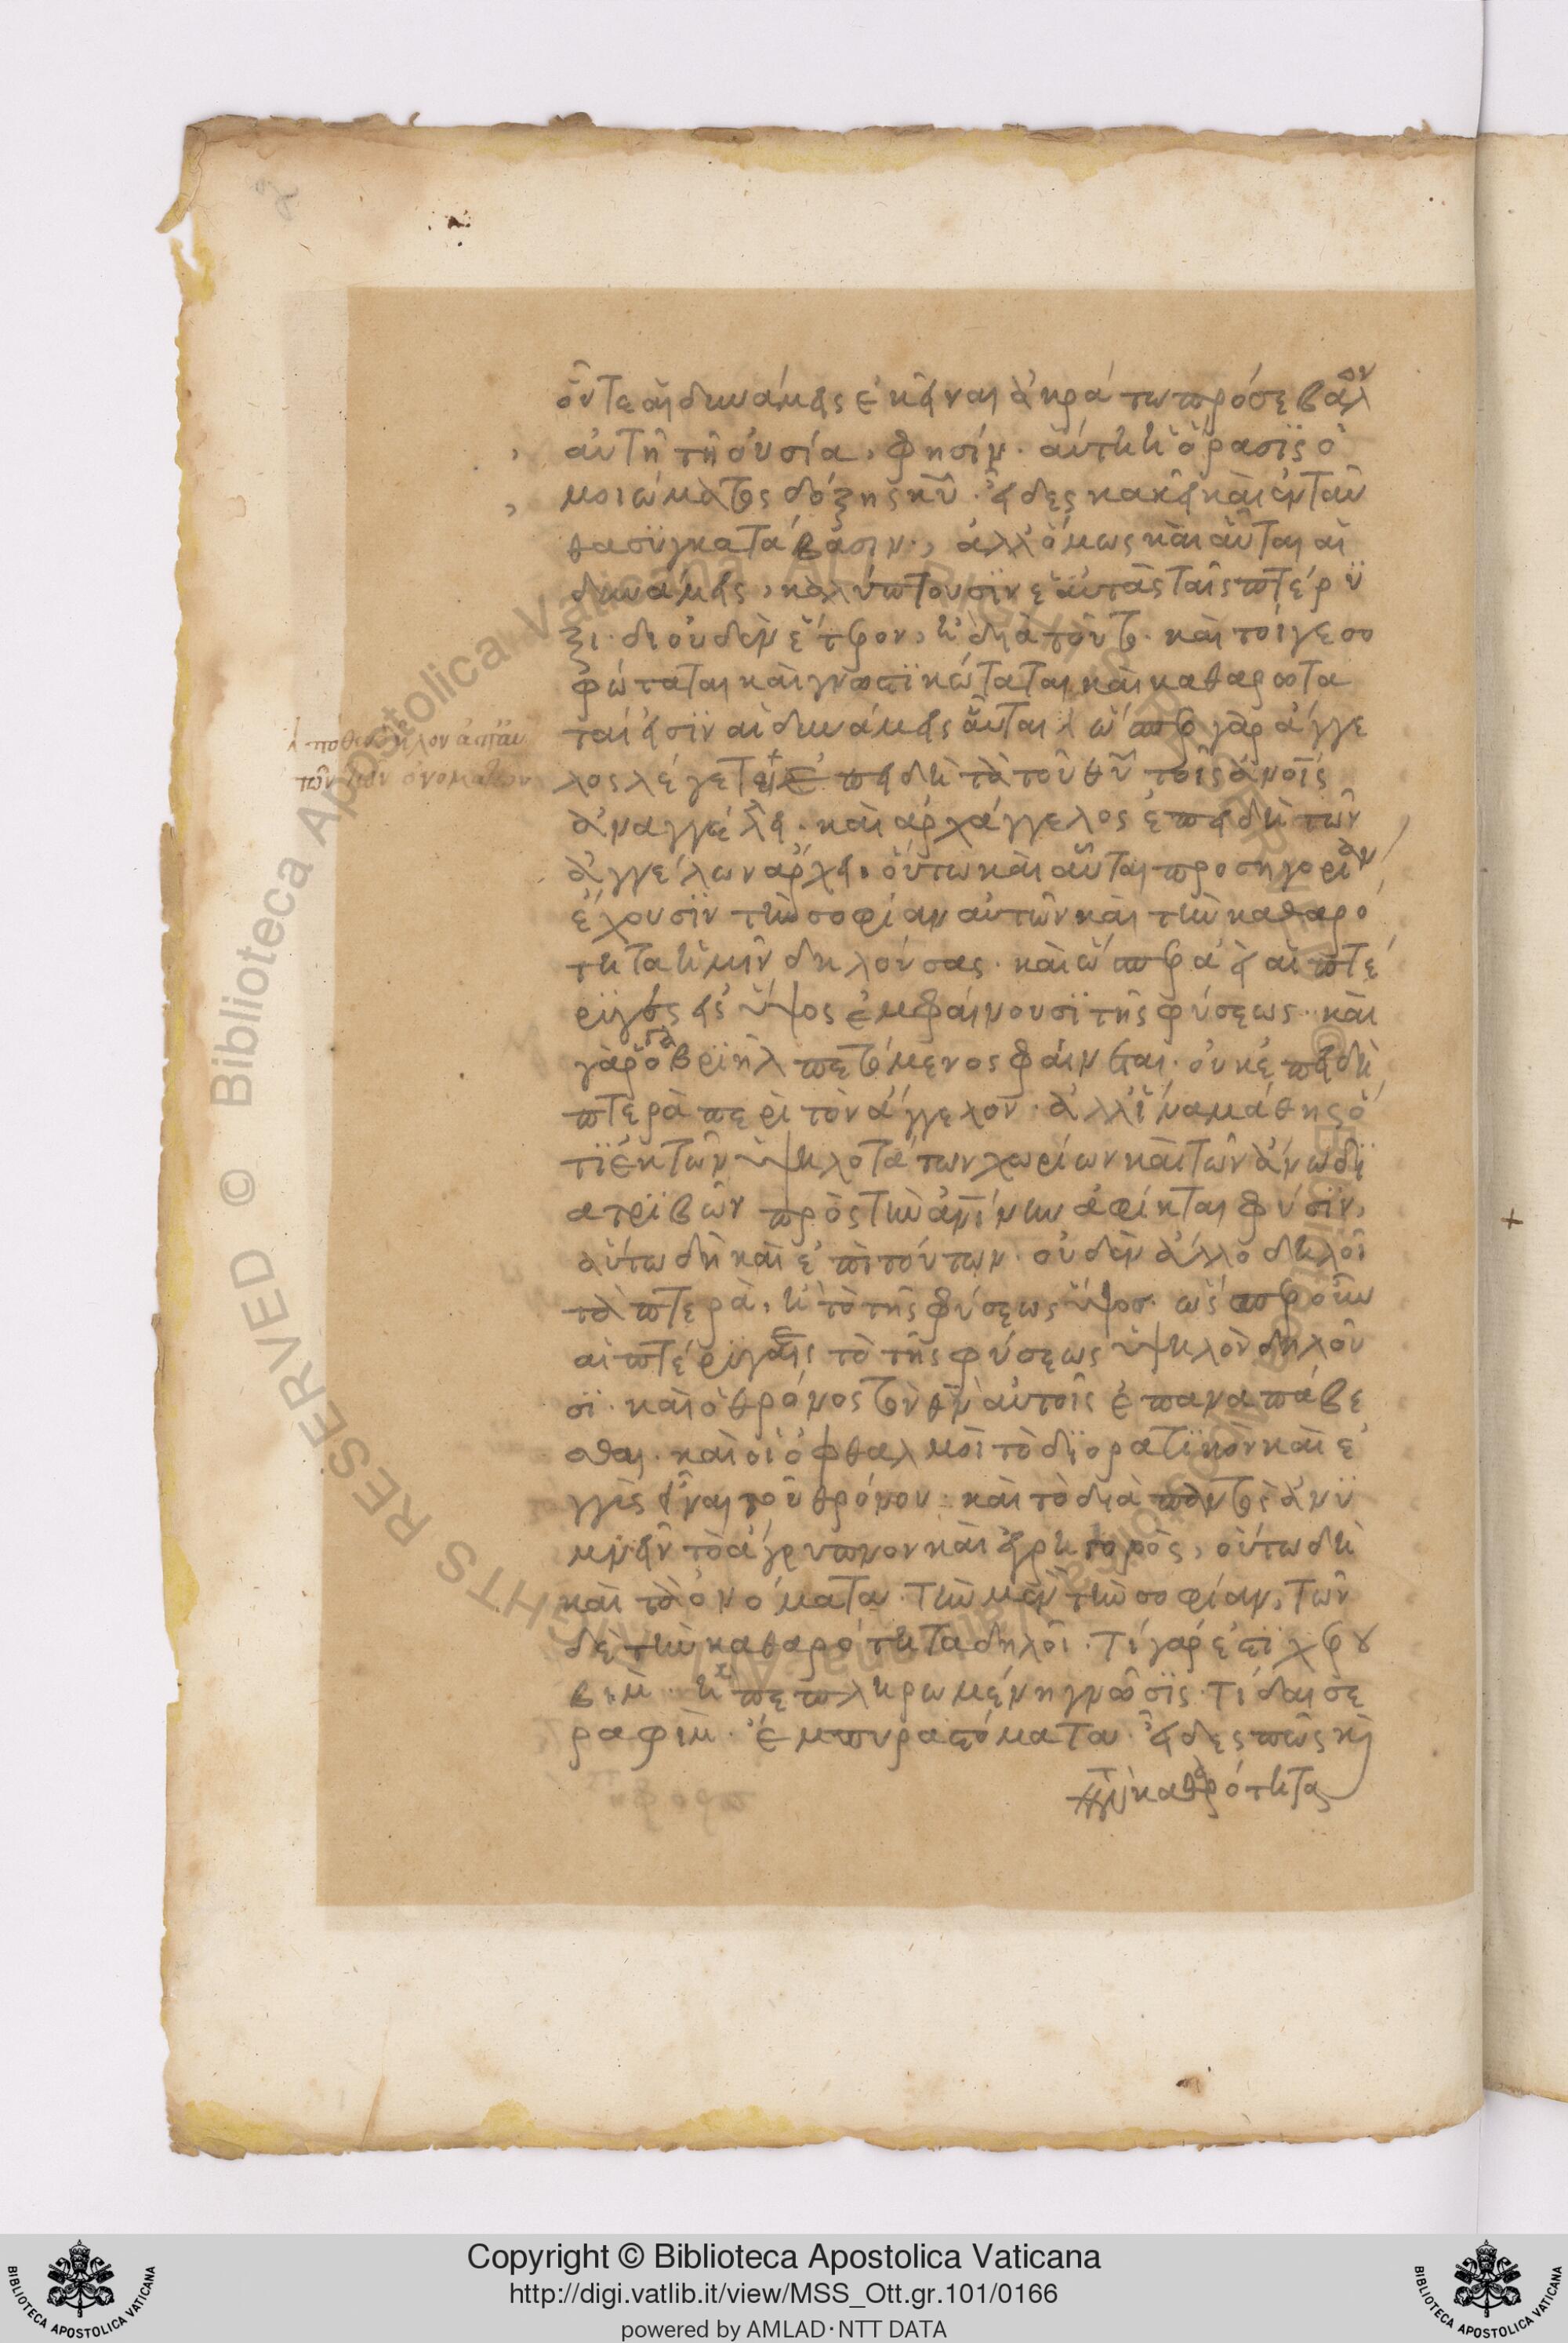 ὄντε αἱ δυνάμεις ἐκεῖναι ἀκράτω προσέβαλλον
αὐτῆ τῆ οὐσία, φησίν· αὕτη ἡ ὅρασϊς ὁ
μοιώματος δόξης κ̅υ̅· εἶδες κακεῖ καὶ ἐνταῦ
θα συγκατάβασιν, ἀλλ' ὅμως καὶ αὗται αἱ
δυνάμεις, καλύπτουσϊν ἑαυτὰς ταῖς πτέρϋ
ξι· δι' οὐδὲν ἕτερον, ἢ διὰ τοῦτο· καὶ τοίγε σο
φώταται καὶ γνωστϊκώταται καὶ καθαρώτα
ταί εἰσϊν αἱ δυνάμεις αὗται· ὥσπερ γὰρ ἄγγε
λος λέγεται ἐπειδὴ τὰ τοῦ θ̅υ̅ τοῖς ἀνοῖς
ἀναγγέλλει· καὶ ἀρχάγγελος ἐπειδὴ τῶν
ἀγγέλων ἄρχει· οὕτω καὶ αὗται προσηγορίαν
ἔχουσϊν τὴν σοφίαν αὐτῶν καὶ τὴν καθαρό
τητα ἡμῖν δηλούσας· καὶ ὥσπερ αἱ πτέ
ρϋγες ὕψος ἐμφαίνουσϊ τῆς φύσεως· καὶ
γὰρ ὁ γαβριὴλ πετόμενος φαίνεται· οὐκ ἐπειδὴ
πτερὰ περὶ τὸν ἄγγελον· ἀλλ' ἵνα μάθης ὅ
τϊ ἐκ τῶν ὑψηλοτάτων χωρίων καὶ τῶν ἄνω δϊ
ατρϊβῶν πρὸς τὴν ἀνίνην ἀφίκται φύσϊν,
οὕτω δὴ καὶ ἐπὶ τούτων· οὐδὲν ἄλλο δηλοῖ
τὰ πτερὰ, ἢ τὸ τῆς φύσεως ὕψος· ὥσπερ οὖν
αἱ πτέρϋγες τὸ τῆς φύσεως ὑψηλὸν δηλοῦ
σϊ· καὶ ὁ θρόνος τὸν θ̅ν̅ αὐτοῖς ἐπαναπάβε
σθαι· καὶ οἱ ὀφθαλμοὶ τὸ διορατϊκὸν καὶ ἐ
γγὺς εἶναι τοῦ θρόνου· καὶ τὸ διὰ παντὸς ἀνϋ
μνεῖν τὸ ἄγρυπνον καὶ ἐγρηγορὸς, οὕτω δὴ
καὶ τὰ ὀνόματα· τὴν μὲν τὴν σοφίαν, τῶν
δὲ τὴν καθαρότητα δηλοῖ· τί γάρ ἐστϊ χερου
βὶμ· ἢ πεπληρωμένη γνῶσϊς· τί δαι σε
ραφὶμ· ἔμπυρα στόματα· εἶδες πῶς καὶ
τὴν καθαρότητα
Copyright © Biblioteca Apostolica Vaticana
http://digi.vatlib.it/view/MSS_Ott.gr.101/0166
powered by AMLAD·NTT DATA
BIBLIOTECA APOSTOLICA VATICANA
BIBLIOTECA APOSTOLICA VATICANA